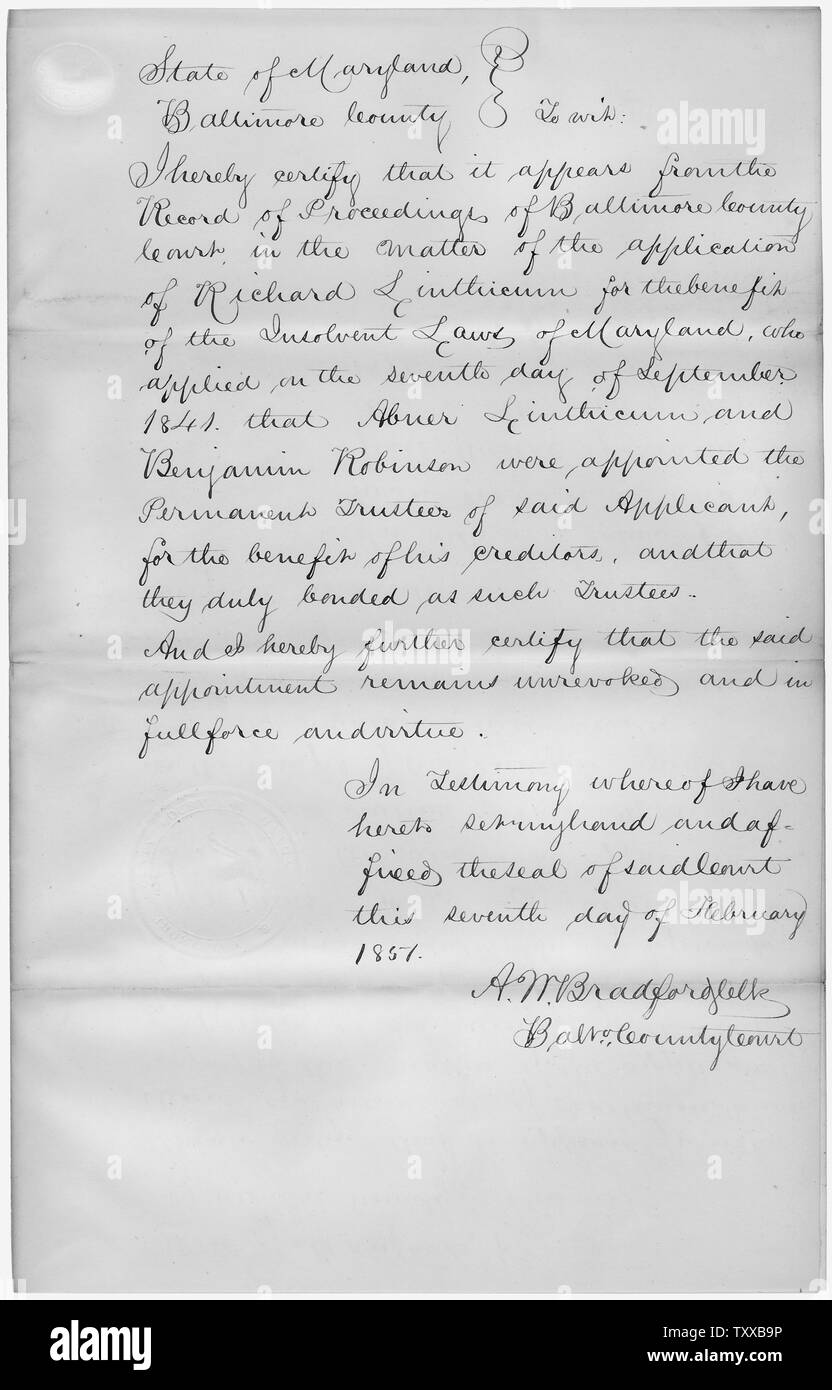 State of Maryland,
Baltimore County To wit:
I hereby certify that it appears from the
Record of Proceedings of Baltimore County
Court, in the matter of the application
of Richard Linthicum for the benefit
of the Insolvent Laws of Maryland, who
applied on the seventh day of September
1841. that Abner Linthicum and
Benjamin Robinson were appointed the
Permanent Trustees of said Applicant,
for the benefit of his creditors, and that
they duly bonded as such Trustees..
And I hereby further certify that the said
appointment remains unrevoked and in
full force and virtue.
In Testimony whereof I have
hereto set my hand and af-
fixed the seal of said Court
this seventh day of February
1851.
A. W. Bradford Clk
Balto. County Court
alamy
Image ID: TXXB9P
www.alamy.com